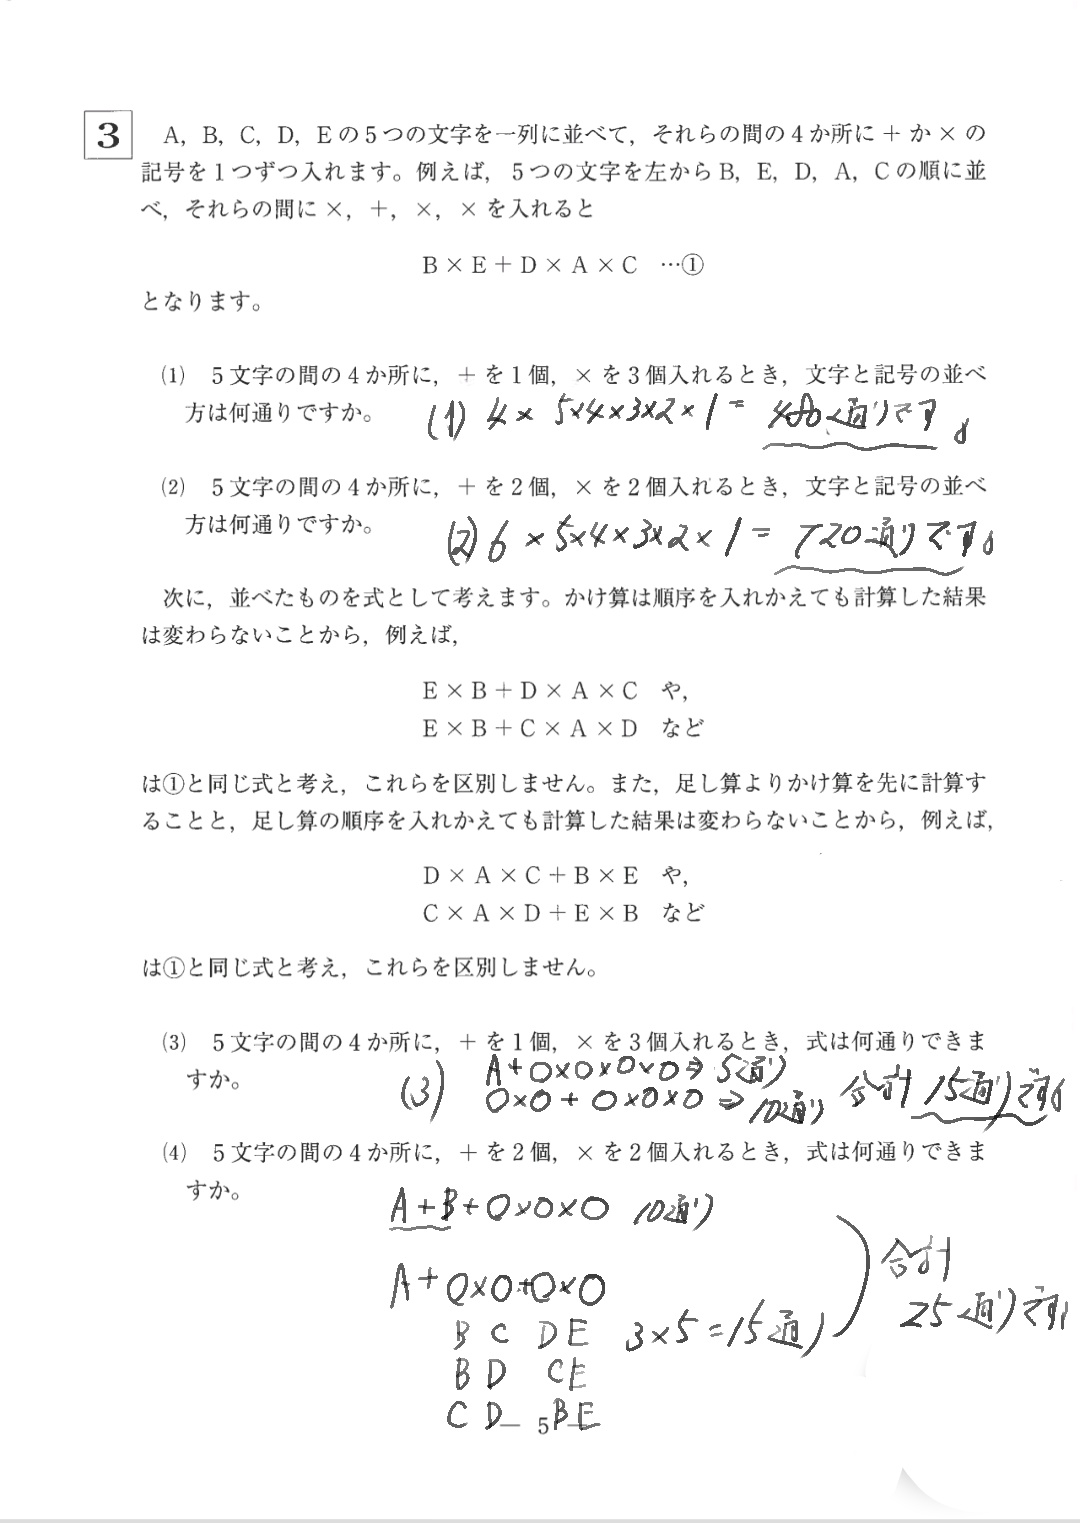 3 A, B, C, D, Eの5つの文字を一列に並べて, それらの間の4か所に + か × の
記号を1つずつ入れます。例えば, 5つの文字を左からB, E, D, A, Cの順に並
べ, それらの間に ×, +, ×, × を入れると
B × E + D × A × C …①
となります。
(1) 5文字の間の4か所に, + を1個, × を3個入れるとき, 文字と記号の並べ
方は何通りですか。
(1) 4× 5×4×3×2×1= 480通りです。
(2) 5文字の間の4か所に, + を2個, × を2個入れるとき, 文字と記号の並べ
方は何通りですか。
(2) 6×5×4×3×2×1= 720通りです。
次に, 並べたものを式として考えます。かけ算は順序を入れかえても計算した結果
は変わらないことから, 例えば,
E × B + D × A × C や,
E × B + C × A × D など
は①と同じ式と考え, これらを区別しません。また, 足し算よりかけ算を先に計算す
ることと, 足し算の順序を入れかえても計算した結果は変わらないことから, 例えば,
D × A × C + B × E や,
C × A × D + E × B など
は①と同じ式と考え, これらを区別しません。
(3) 5文字の間の4か所に, + を1個, × を3個入れるとき, 式は何通りできま
すか。
(3) A+○×○×○×○⇒5通り
○×○+○×○×○⇒10通り 合計 15通りです。
(4) 5文字の間の4か所に, + を2個, × を2個入れるとき, 式は何通りできま
すか。
A+B+○×○×○ 10通り
A+○×○+○×○
B C D E 3×5=15通り
合計
25通りです
B D C E
C D B E
— 5 —